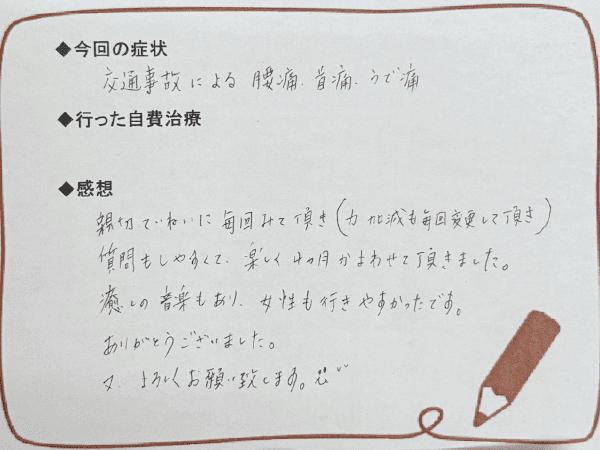 ◆今回の症状
交通事故による 腰痛、首痛、うで痛
◆行った自費治療
◆感想
親切ていねいに毎回みて頂き(力加減も毎回変更して頂き)
質問もしやすくて、楽しく4ヶ月かよわせて頂きました。
癒しの音楽もあり、女性も行きやすかったです。
ありがとうございました。
又、よろしくお願い致します。